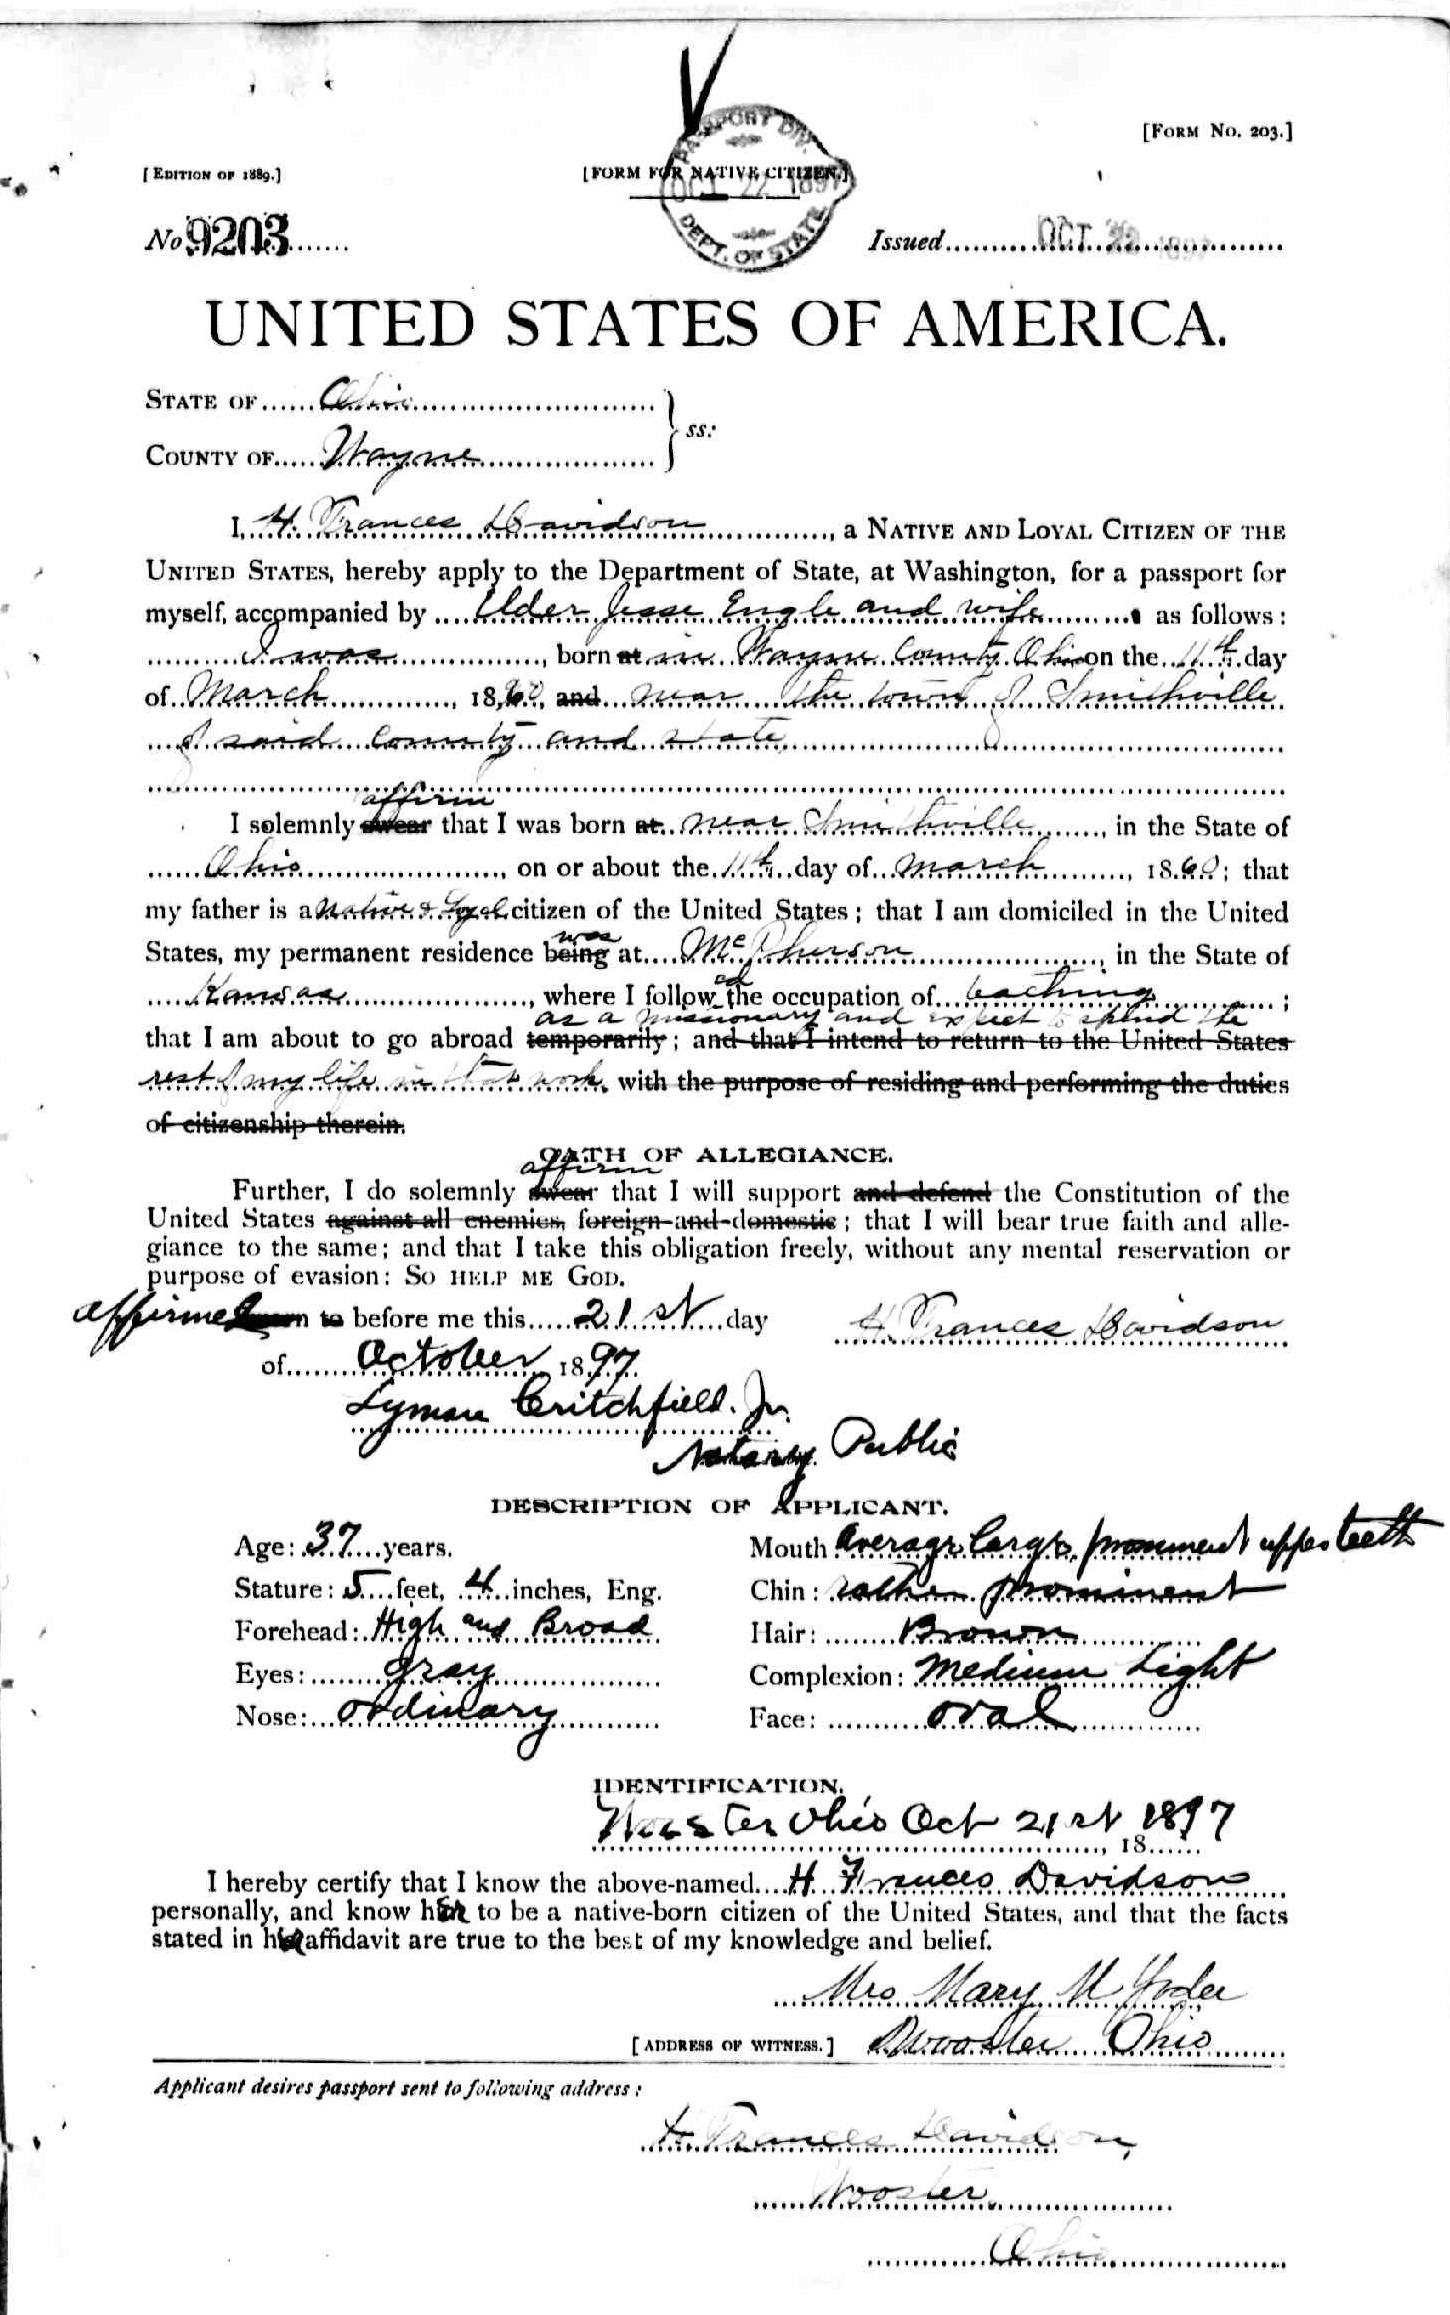 [FORM NO. 203.]
[EDITION OF 1889.]
[FORM FOR NATIVE CITIZEN.]
PASSPORT DIV.
OCT 22 1897
DEPT. OF STATE
No 9203
Issued OCT 22 1897
UNITED STATES OF AMERICA.
STATE OF Ohio
ss:
COUNTY OF Wayne
I, H. Frances Davidson, a NATIVE AND LOYAL CITIZEN OF THE
UNITED STATES, hereby apply to the Department of State, at Washington, for a passport for
myself, accompanied by Elder Jesse Engle and wife as follows:
I was, born at in Wayne County Ohio on the 11th day
of March, 1860, and near the town of Smithville
of said county and state
affirm
I solemnly swear that I was born at near Smithville, in the State of
Ohio, on or about the 11th day of March, 1860; that
my father is a native & loyal citizen of the United States; that I am domiciled in the United
was
States, my permanent residence being at McPherson, in the State of
Kansas, where I followed the occupation of teaching;
as a missionary and expect to spend the
that I am about to go abroad temporarily; and that I intend to return to the United States
rest of my life in that work. with the purpose of residing and performing the duties
of citizenship therein.
OATH OF ALLEGIANCE.
affirm
Further, I do solemnly swear that I will support and defend the Constitution of the
United States against all enemies, foreign and domestic; that I will bear true faith and alle-
giance to the same; and that I take this obligation freely, without any mental reservation or
purpose of evasion: SO HELP ME GOD.
affirmed sworn to before me this 21st day
H. Frances Davidson
of October 1897
Lyman Critchfield. Jr.
Notary Public
DESCRIPTION OF APPLICANT.
Age: 37 years.
Mouth average large, prominent upper teeth
Stature: 5 feet, 4 inches, Eng.
Chin: rather prominent
Forehead: High and Broad
Hair: Brown
Eyes: gray
Complexion: Medium Light
Nose: ordinary
Face: oval
IDENTIFICATION.
Wooster Ohio Oct 21st 1897
18
I hereby certify that I know the above-named H Frances Davidson
personally, and know her to be a native-born citizen of the United States, and that the facts
stated in her affidavit are true to the best of my knowledge and belief.
Mrs Mary M Yoder
[ADDRESS OF WITNESS.] Wooster Ohio
Applicant desires passport sent to following address:
H. Frances Davidson,
Wooster,
Ohio